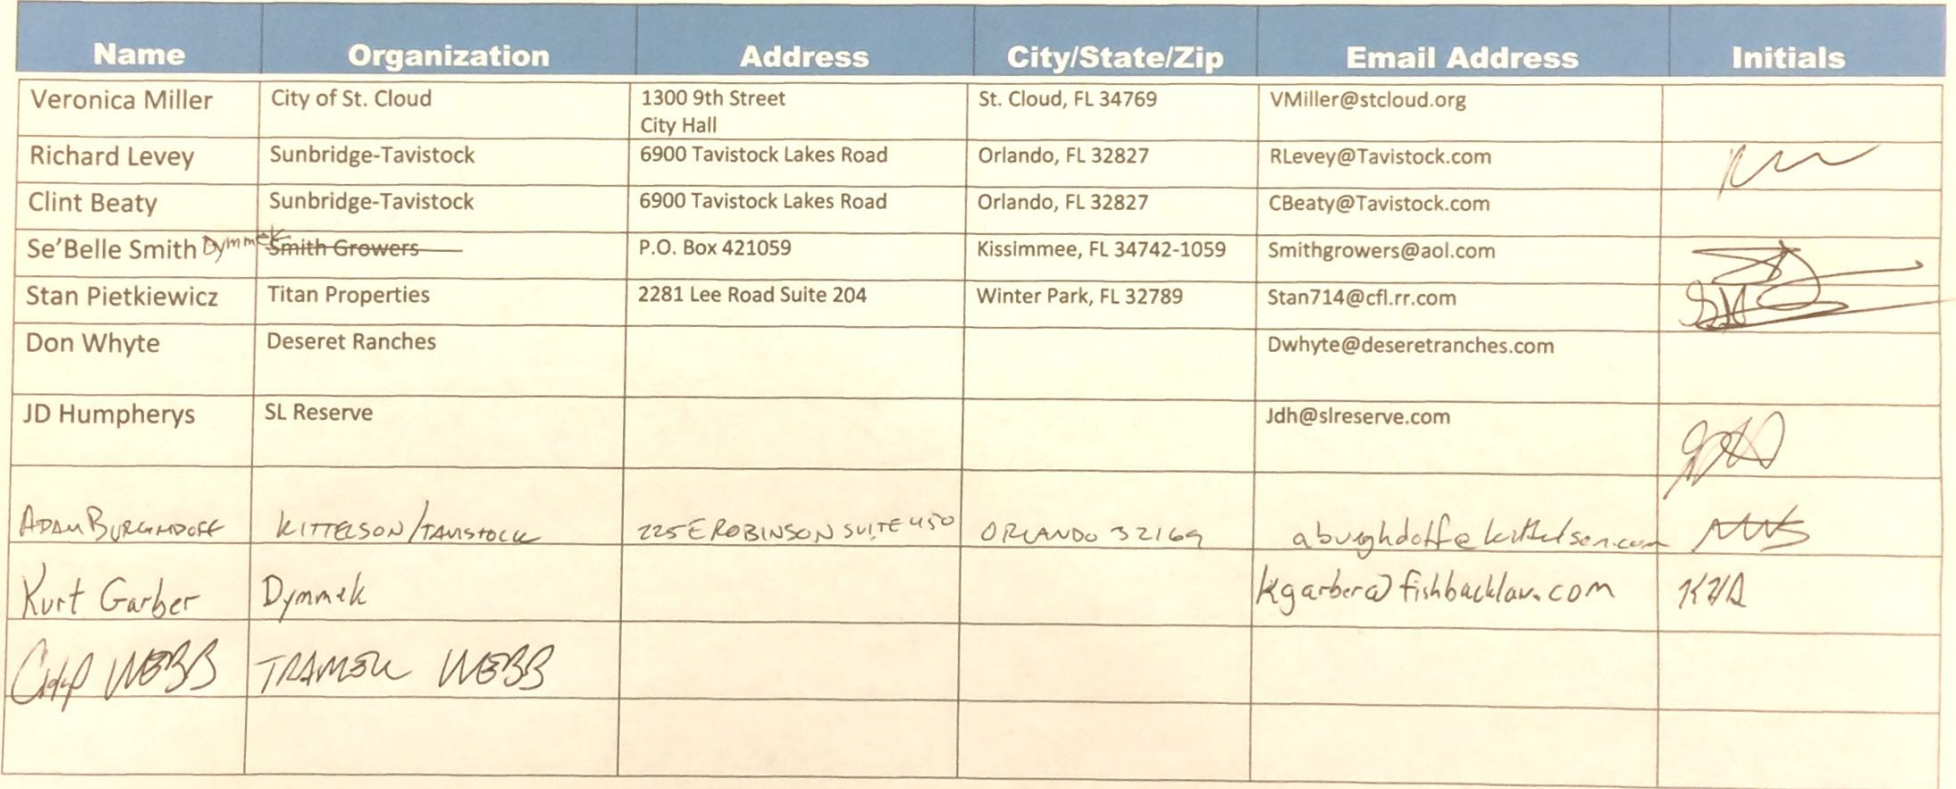 Name Organization Address City/State/Zip Email Address Initials
Veronica Miller City of St. Cloud 1300 9th Street St. Cloud, FL 34769 VMiller@stcloud.org
City Hall
Richard Levey Sunbridge-Tavistock 6900 Tavistock Lakes Road Orlando, FL 32827 RLevey@Tavistock.com
Clint Beaty Sunbridge-Tavistock 6900 Tavistock Lakes Road Orlando, FL 32827 CBeaty@Tavistock.com
Se'Belle Smith Dymmek Smith Growers P.O. Box 421059 Kissimmee, FL 34742-1059 Smithgrowers@aol.com
Stan Pietkiewicz Titan Properties 2281 Lee Road Suite 204 Winter Park, FL 32789 Stan714@cfl.rr.com
Don Whyte Deseret Ranches Dwhyte@deseretranches.com
JD Humpherys SL Reserve Jdh@slreserve.com
ADAM KITTELSON/TAVISTOCK 225 E ROBINSON SUITE 450 ORLANDO 32169
Kurt Garber Dymmek kgarber@fishbacklaw.com
WEBB WEBB